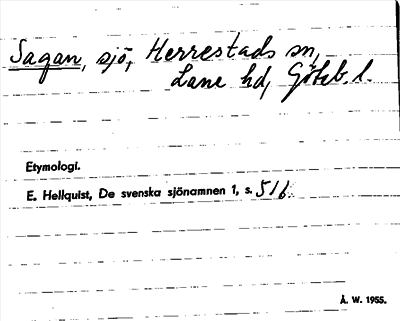 Sagan, sjö, Herrestads sn,
Lane hd, Göteb. l.
Etymologi.
E. Hellquist, De svenska sjönamnen 1, s. 516.
Å. W. 1955.